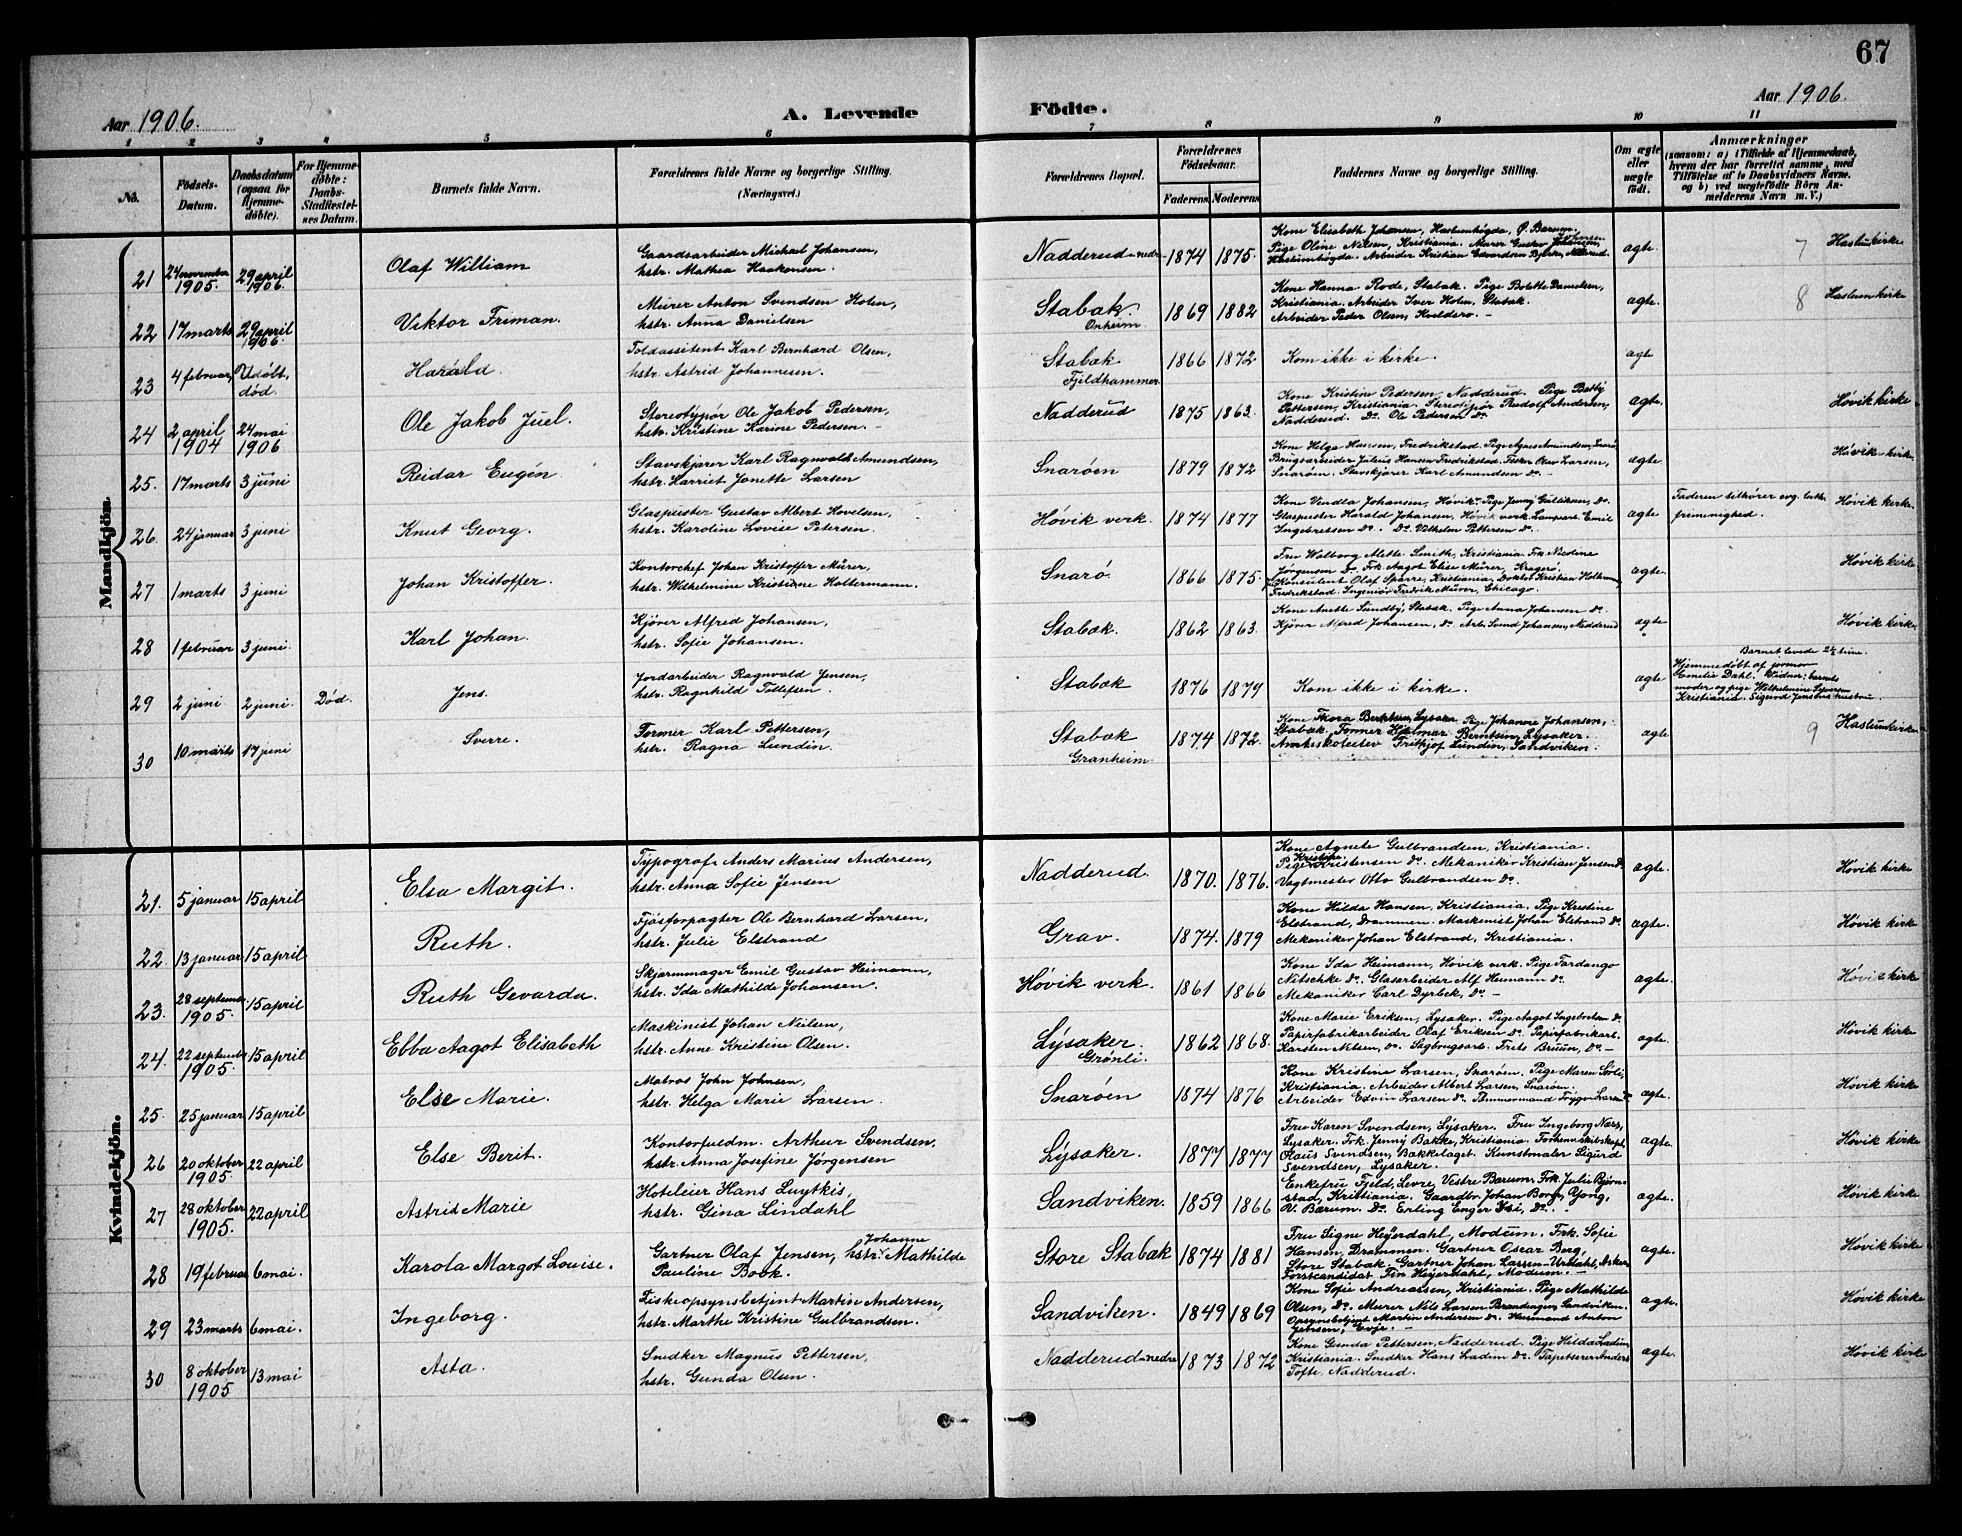 67
Aar 1906.
A. Levende
Födte.
Aar 1906.
1 2 3 4 5 6 7 8 9 10 11
No.
Födsels-
Datum.
Daabsdatum
(ogsaa for
Hjemme-
döbte).
For Hjemme-
döbte:
Daabs-
Stadfæstel-
ses Datum.
Barnets fulde Navn.
Forældrenes fulde Navne og borgerlige Stilling.
(Næringsvei.)
Forældrenes Bopæl.
Forældrenes
Födselsaar.
Faderens. Moderens.
Faddernes Navne og borgerlige Stilling.
Om ægte
eller
uægte
födt.
Anmærkninger
(saasom: a) i Tilfælde af Hjemmedaab,
hvem der har forrettet samme, med
Tilföielse af to Daabsvidners Navne,
og b) ved uægtefödte Börn An-
melderens Navn m. V.)
Mandkjön.
21 24 november 1905. 29 april 1906. Olaf William
Gaardsarbeider Michael Johansen,
hstr. Mathea Haakensen.
Nadderud nedre 1874 1875.
Kone Elisabeth Johansen, Haslumhøgda, Ø. Bærum.
Pige Oline Nilsen, Kristiania. Murer Gustav Johansen,
Haslumhøgda. Arbeider Kristian Edvardsen Bjerke, Nadderud.
ægte. 7 Haslum kirke
22 17 marts 29 april 1906. Viktor Friman.
Murer Anton Svendsen Holen,
hstr. Anna Danielsen
Stabæk. Onheim 1869 1882
Kone Hanna Rode, Stabæk. Pige Bolette Danielsen,
Kristiania. Arbeider Iver Holen, Stabæk.
Arbeider Peder Olsen, Kveldero. -
ægte. 8 Haslum kirke
23 4 februar, Udøbt, død. Harald.
Toldassistent Karl Bernhard Olsen,
hstr. Astrid Johannesen.
Stabæk Fjeldhammer 1866 1872
Kom ikke i kirke.
ægte
24 2 april 1904 24 mai 1906 Ole Jakob Juel.
Stereotypør Ole Jakob Pedersen,
hstr. Kristine Karine Pedersen. -
Nadderud 1875 1863.
Kone Kristine Pedersen, Nadderud. Pige Betty
Pettersen, Kristiania. Stereotypør Rudolf Andersen,
Nadderud. Do. Ole Pedersen do.
ægte. Høvik kirke
25. 17 marts 3 juni Reidar Eugén
Stavskjærer Karl Ragnvald Amundsen,
hstr. Harriet Janette Larsen
Snarøen 1879 1872
Kone Helga Hansen, Fredrikstad. Pige Agnes Amundsen, Snarø.
Brugsarbeider Julius Hansen Fredrikstad. Fisker Olav Larsen,
Snarøen. Stavskjærer Karl Amundsen do.
ægte Høvik kirke.
26. 24 januar 3 juni Knut Georg.
Glaspuster Gustav Albert Hovelsen,
hstr. Karoline Lovise Petersen.
Høvik verk. 1874 1877
Kone Vendla Johansen, Høvik. Pige Jenny Gulliksen, do.
Glaspuster Harald Johansen, Høvik verk. Lampearb. Emil
Ingebretsen do. Do. Vilhelm Pettersen do.
ægte
Faderen tilhører evg. luth.
frimenighed. Høvik kirke.
27 1 marts 3 juni Johan Kristoffer.
Kontorchef Johan Kristoffer Mürer,
hstr. Wilhelmine Kristiane Haltermann.
Snarø 1866 1875.
Fru Walborg Alette Smith, Kristiania. Frk. Nicoline
Jørgensen Do. Frk. Aagot Elise Mürer, Kragerø.
Konsulent Olaf Sparre, Kristiania. Doktor Kristian Holtermann,
Fredrikstad. Ingeniør Fredrik Mürer, Chicago.
ægte. Høvik kirke
28 1 februar 3 juni. Karl Johan.
Kjører Alfred Johansen,
hstr. Sofie Johansen.
Stabæk. 1862 1863.
Kone Anette Sundby, Stabæk. Pige Anna Johansen do.
Kjører Alfred Johansen, do. Arb. Lund Johansen, Nadderud
ægte Høvik kirke.
29 2 juni 2 juni. Død. Jens.
Jordarbeider Ragnvald Jensen,
hstr. Ragnhild Tollefsen.
Stabæk 1876 1879
Kom ikke i kirke.
ægte
Barnet levede 2½ time.
Hjemmedøbt af jormor
Emelie Dahl. Vidner: barnets
moder og pige Wilhelmine Syversen
Kristiania. Sigurd Jensens hustru.
30 10 marts 17 juni Sverre.
Former Karl Pettersen,
hstr. Ragna Lundin.
Stabæk Granheim. 1874 1872.
Kone Thora Berntsen, Lysaker. Pige Johanne Johansen,
Stabæk. Former Hjalmar Berntsen, Lysaker.
Amtsskoleelev Frithjof Lundin, Sandviken.
ægte 9 Haslum kirke
Kvindekjön.
21. 5 januar 15 april Elsa Margit.
Typograf Anders Marius Andersen,
hstr. Anna Sofie Jensen
Nadderud. 1870. 1876.
Kone Agnete Gulbrandsen, Kristiania.
Pige Kristine Kristensen do. Mekaniker Kristian Jensen do.
Vagtmester Otto Gulbrandsen do.
ægte. Høvik kirke
22 13 januar 15 april Ruth.
Fjøsforpagter Ole Bernhard Larsen,
hstr. Julie Elstrand
Grav. 1874. 1879
Kone Hilda Hansen, Kristiania. Pige Kristine
Elstrand, Drammen. Maskinist Johan Elstrand do.
Mekaniker Johan Elstrand, Kristiania.
ægte. Høvik kirke
23. 28 september 1905. 15 april Ruth Gevarda.
Skjærmmager Emil Gustav Heimann,
hstr. Ida Mathilde Johansen.
Høvik verk. 1861 1866
Kone Ida Heimann, Høvik verk. Pige Tardango
Nitschke do. Glasarbeider Alf Heimann do.
Mekaniker Carl Dyrbek, do. -
ægte. Høvik kirke
24. 22 september 1905. 15 april Ebba Aagot Elisabeth
Maskinist Johan Nielsen,
hstr. Anne Kristine Olsen.
Lysaker. Grønli. 1862 1868.
Kone Marie Eriksen, Lysaker. Pige Aagot Ingebretsen do.
Papirfabrikarbeider Olaf Eriksen do. Papirfabrikarb.
Karsten Nilsen, do. Sagbrugsarb. Frits Bruun, do. -
ægte. Høvik kirke
25. 25 januar 15 april Else Marie.
Matros John Johnsen,
hstr. Helga Marie Larsen.
Snarøen 1874 1876
Kone Kristine Larsen, Snarøen. Pige Maren Sørli,
Kristiania. Arbeider Albert Larsen, Snarøen.
Arbeider Edvin Larsen do. Tømmermand Trygve Larsen do.
ægte. Høvik kirke
26 20 oktober 1905. 22 april Else Berit.
Kontorfuldm. Arthur Svendsen,
hstr. Anna Josefine Jørgensen
Lysaker. 1877 1877
Fru Karen Svendsen, Lysaker. Fru Ingeborg Næss,
Lysaker. Frk. Jenny Bakke, Kristiania. Forhenv. skibskapt.
Olaus Svendsen, Bakkelaget. Kunstmaler Sigurd
Svendsen, Lysaker.
ægte. Høvik kirke
27 28 oktober 1905. 22 april Astrid Marie
Hoteleier Hans Luytkis,
hstr. Gina Lindahl
Sandviken. 1859 1866
Enkefru Fjeld, Levre, Vestre Bærum. Frk. Julie Bjørn-
stad, Kristiania. Gaardbr. Johan Borg, Yong,
V. Bærum. Do. Erling Enger Isi, do.
ægte. Høvik kirke
28 19 februar 6 mai. Karola Margot Louise.
Gartner Olaf Jensen, hstr. Johanne Mathilde
Pauline Book.
Store Stabæk 1874 1881
Fru Signe Heyerdahl, Modum. Frk. Sofie
Hansen, Drammen. Gartner Oscar Berg,
Store Stabæk. Gartner Johan Larssen Urdahl, Asker.
Forstcandidat Fin Heyerdahl, Modum. -
ægte. Høvik kirke
29 23 marts 6 mai. Ingeborg.
Fiskeopsynsbetjent Martin Andersen,
hstr. Marthe Kristine Gulbrandsen.
Sandviken. 1849 1869
Kone Sofie Andreassen, Kristiania. Pige Mathilde
Olsen, do. Murer Nils Larsen Brandengen, Sandviken.
Opsynsbetjent Martin Andersen do. Husmand Anton
Jensen, Evje. -
ægte. Høvik kirke
30 8 oktober 1905 13 mai Asta.
Snedker Magnus Pettersen,
hstr. Gunda Olsen.
Nadderud nedre 1873 1872
Kone Gunda Pettersen, Nadderud. Pige Hilda Ladim,
Kristiania. Snedker Hans Ladim do. Tapetserer Anders
Tofte, Nadderud.
ægte. Høvik kirke